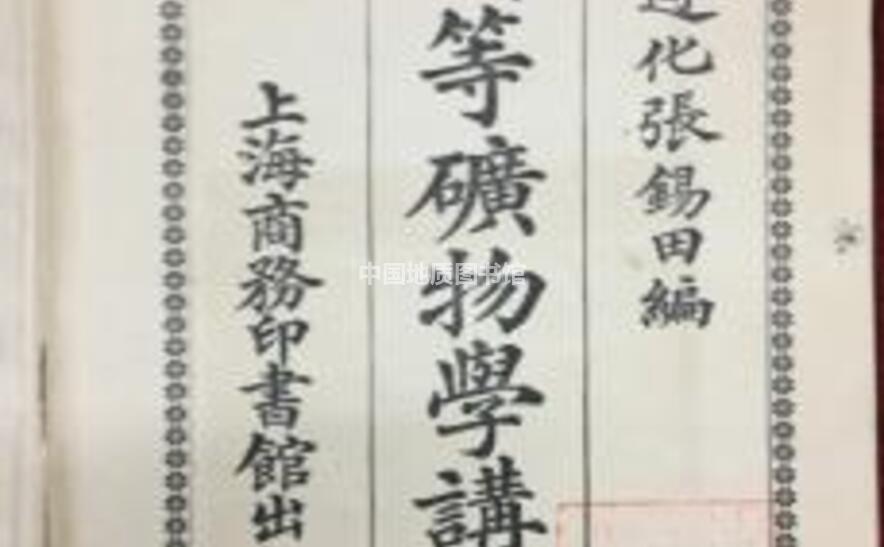 遵化張錫田編
等礦物學講
上海商務印書館出
中国地质图书馆